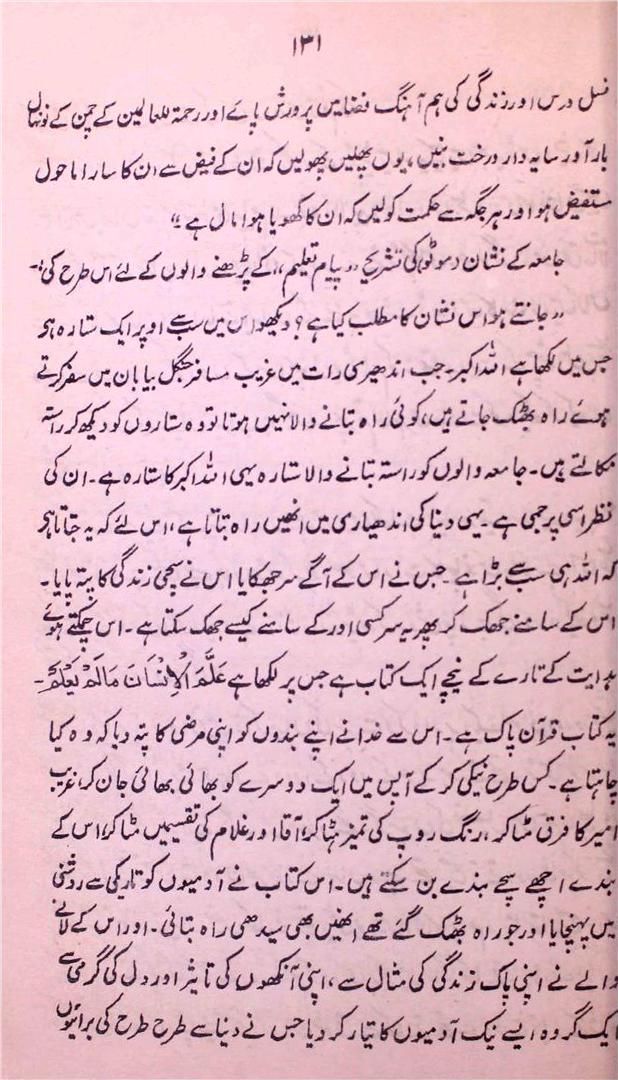 ۱۳۱
نسل درس اور زندگی کی ہم آہنگ فضا میں پرورش پائے اور رحمۃ للعالمین کے چمن کے نونہال
بار آور سایہ دار درخت بنیں، یوں پھلیں پھولیں کہ ان کے فیض سے ان کا سارا ماحول
مستفیض ہو اور ہر جگہ سے حکمت کو لیں کہ ان کا کھویا ہوا مال ہے"
جامعہ کے نشان (موٹو) کی تشریح "پیام تعلیم" کے پڑھنے والوں کے لئے اس طرح کی:-
"جانتے ہو اس نشان کا مطلب کیا ہے؟ دیکھو اس میں سب سے اوپر ایک ستارہ ہو
جس میں لکھا ہے اللہ اکبر۔ جب اندھیری رات میں غریب مسافر جنگل بیابان میں سفر کرتے
ہوئے راہ بھٹک جاتے ہیں، کوئی راہ بتانے والا نہیں ہوتا تو وہ ستاروں کو دیکھ کر راستہ
نکالتے ہیں۔ جامعہ والوں کو راستہ بتانے والا ستارہ یہی اللہ اکبر کا ستارہ ہے۔ ان کی
نظر اسی پر جمی ہے۔ یہی دنیا کی اندھیاری میں انھیں راہ بتاتا ہے، اس لئے کہ یہ جتاتا ہو
کہ اللہ ہی سب سے بڑا ہے۔ جس نے اس کے آگے سر جھکایا اس نے سچی زندگی کا پتہ پایا۔
اس کے سامنے جھک کر پھر یہ سر کسی اور کے سامنے کیسے جھک سکتا ہے۔ اس چمکتے ہوئے
ہدایت کے تارے کے نیچے ایک کتاب ہے جس پر لکھا ہے عَلَّمَ الْاِنْسَانَ مَالَمْ یَعْلَمْ۔
یہ کتاب قرآن پاک ہے۔ اس سے خدا نے اپنے بندوں کو اپنی مرضی کا پتہ دیا کہ وہ کیا
چاہتا ہے۔ کس طرح نیکی کر کے آپس میں ایک دوسرے کو بھائی بھائی جان کر، غریب
امیر کا فرق مٹا کر، رنگ روپ کی تمیز ہٹا کر، آقا اور غلام کی تقسیمیں مٹا کر، اس کے
بندے اچھے سچے بندے بن سکتے ہیں۔ اس کتاب نے آدمیوں کو تاریکی سے روشنی
میں پہنچایا اور جو راہ بھٹک گئے تھے انھیں بھی سیدھی راہ بتائی۔ اور اس کے لانے
والے نے اپنی پاک زندگی کی مثال سے، اپنی آنکھوں کی تاثیر اور دل کی گرمی سے
ایک گروہ ایسے نیک آدمیوں کا تیار کر دیا جس نے دنیا سے طرح طرح کی برائیوں